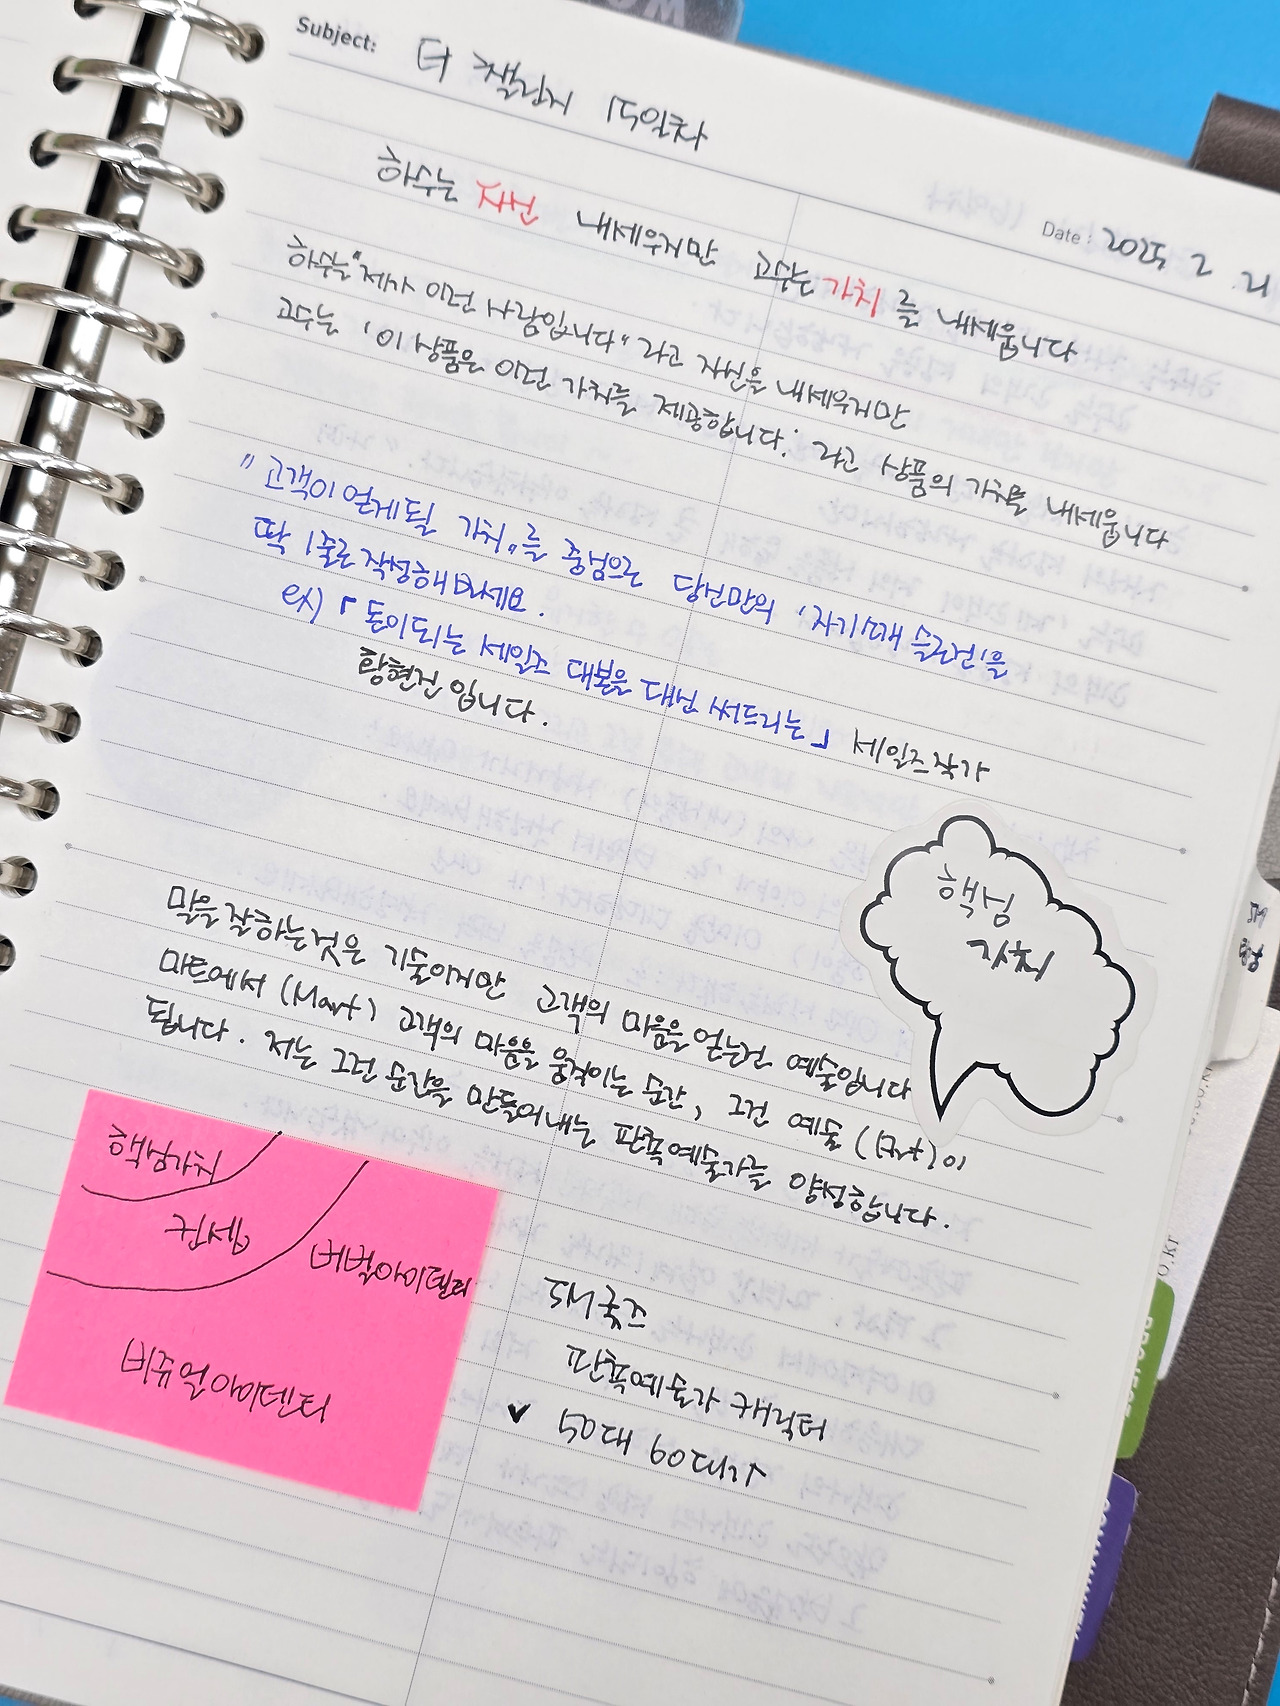 Subject: 더 챌린지 15일차
Date: 2025 2 21
하수는 자신 내세우지만 고수는 가치를 내세웁니다
하수는 "제가 이런 사람입니다" 라고 자신을 내세우지만
고수는 '이 상품은 이런 가치를 제공합니다.' 라고 상품의 가치를 내세웁니다
"고객이 얻게될 가치"를 중심으로 당신만의 '자기소개 슬로건'을
딱 1줄로 작성해보세요.
ex) 「돈이되는 세일즈 대본을 대신 써드리는」 세일즈작가
황현진입니다.
핵심
가치
말을 잘하는것은 기술이지만 고객의 마음을 얻는건 예술입니다
마트에서 (Mart) 고객의 마음을 움직이는 순간, 그건 예술 (Art)이
됩니다. 저는 그런 순간을 만들어내는 판촉예술가를 양성합니다.
핵심가치
컨셉
버벌아이덴티
비쥬얼아이덴티
굿즈
판촉예술가 캐릭터
✓ 50대 60대